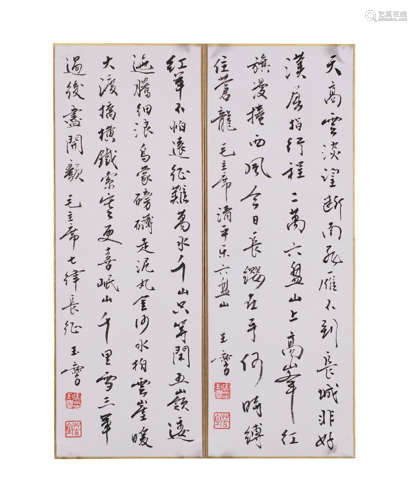 天高雲淡望断南飛雁不到長城非好
漢屈指行程二萬六盤山上高峰紅
旗漫捲西風今日長纓在手何時縛
住蒼龍 毛主席清平乐六盤山 王
紅軍不怕遠征難萬水千山只等閑五嶺逶
迤騰細浪烏蒙磅礴走泥丸金沙水拍雲崖暖
大渡橋横鐵索寒更喜岷山千里雪三軍
過後盡開顏 毛主席七律長征 王